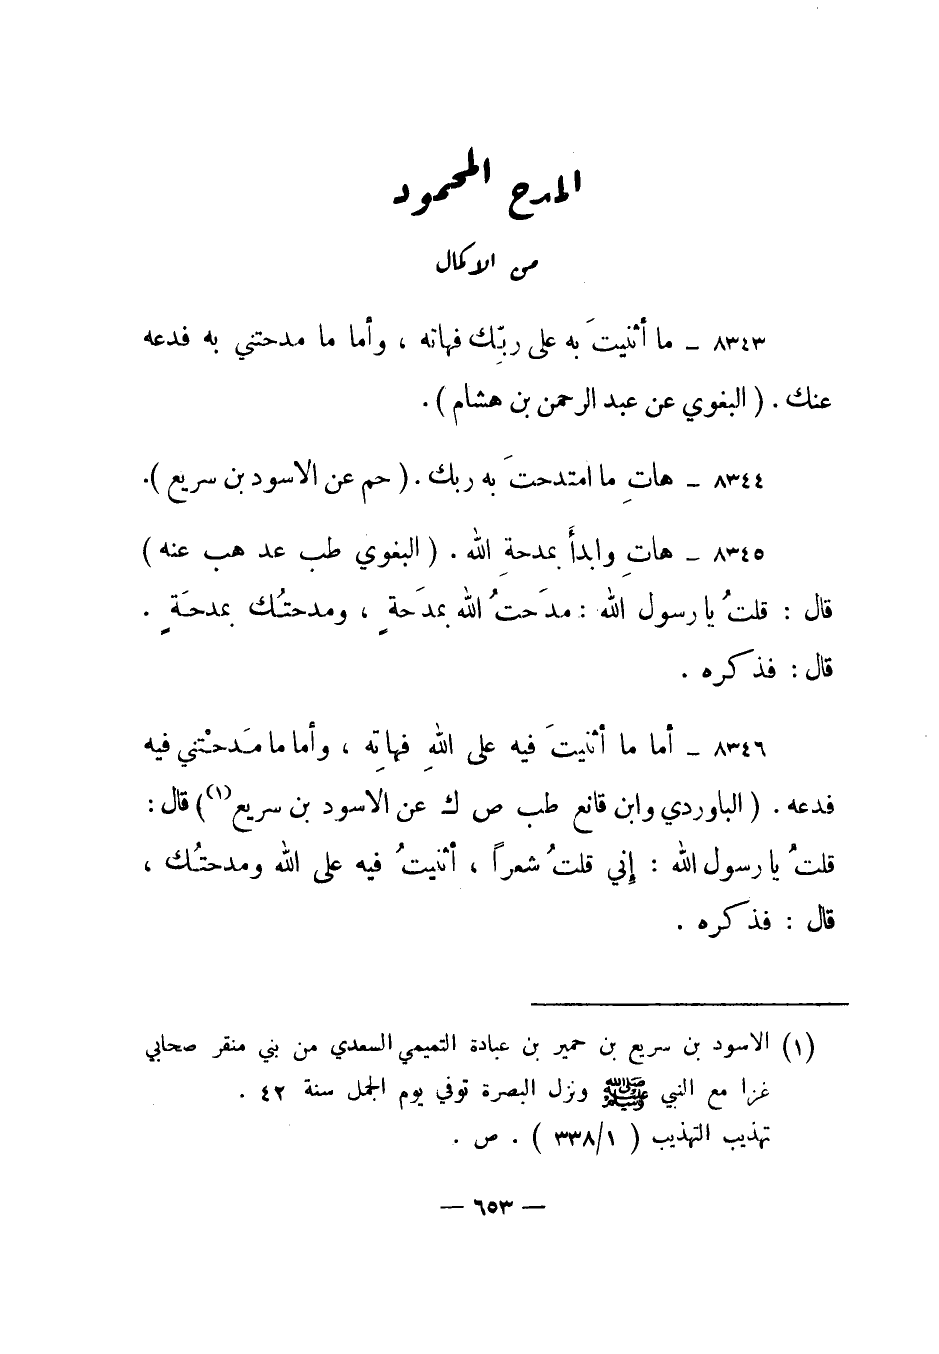 المدح المحمود
من الاكمال
٨٣٤٣ ـ ما أثنيتَ به على ربِّك فهاته ، وأما ما مدحتني به فدعه
عنك . ( البغوي عن عبد الرحمن بن هشام ) .
٨٣٤٤ ـ هاتِ ما امتدحتَ به ربك . ( حم عن الاسود بن سريع ).
٨٣٤٥ ـ هاتِ وابدأَ بمدحةِ الله . ( البغوي طب عد هب عنه )
قال : قلتُ يا رسول الله : مدَحتُ الله بمدَحةٍ ، ومدحتُك بمدحَةٍ .
قال : فذكره .
٨٣٤٦ ـ أما ما أثنيتَ فيه على اللهِ فهاتِه ، وأما ما مَدحْتني فيه
فدعه . ( الباوردي وابن قانع طب ص ك عن الاسود بن سريع(١)) قال :
قلتُ يا رسول الله : إني قلتُ شعراً ، أثنيتُ فيه على الله ومدحتُك ،
قال : فذكره .
(١) الاسود بن سريع بن حمير بن عبادة التميمي السعدي من بني منقر صحابي
غزا مع النبي ﷺ ونزل البصرة توفي يوم الجمل سنة ٤٢ .
تهذيب التهذيب ( ٣٣٨/١ ) . ص .
— ٦٥٣ —